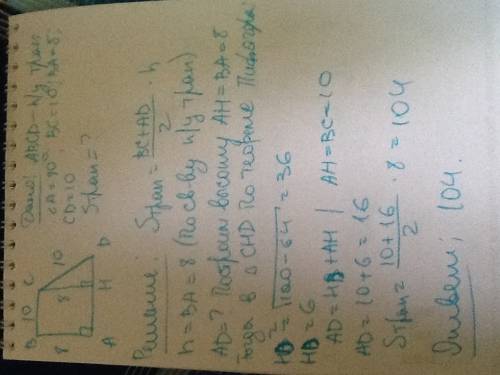 Дано: ABCD – п/у трап
∠A=90° BC=10; BA=8;
CD=10
Sтрап=?
B 10 C
8 8 10
A H D
Решение: Sтрап = BC+AD/2 · h
h=BA=8 (По св-ву п/у трап)
AD=? Построим высоту AH=BA=8
Тогда в △CHD по теореме Пифагора:
HD²=√100-64=36
HD=6
AD=HD+AH | AH=BC=10
AD=10+6=16
Sтрап= 10+16/2 · 8=104
Ответ: 104.